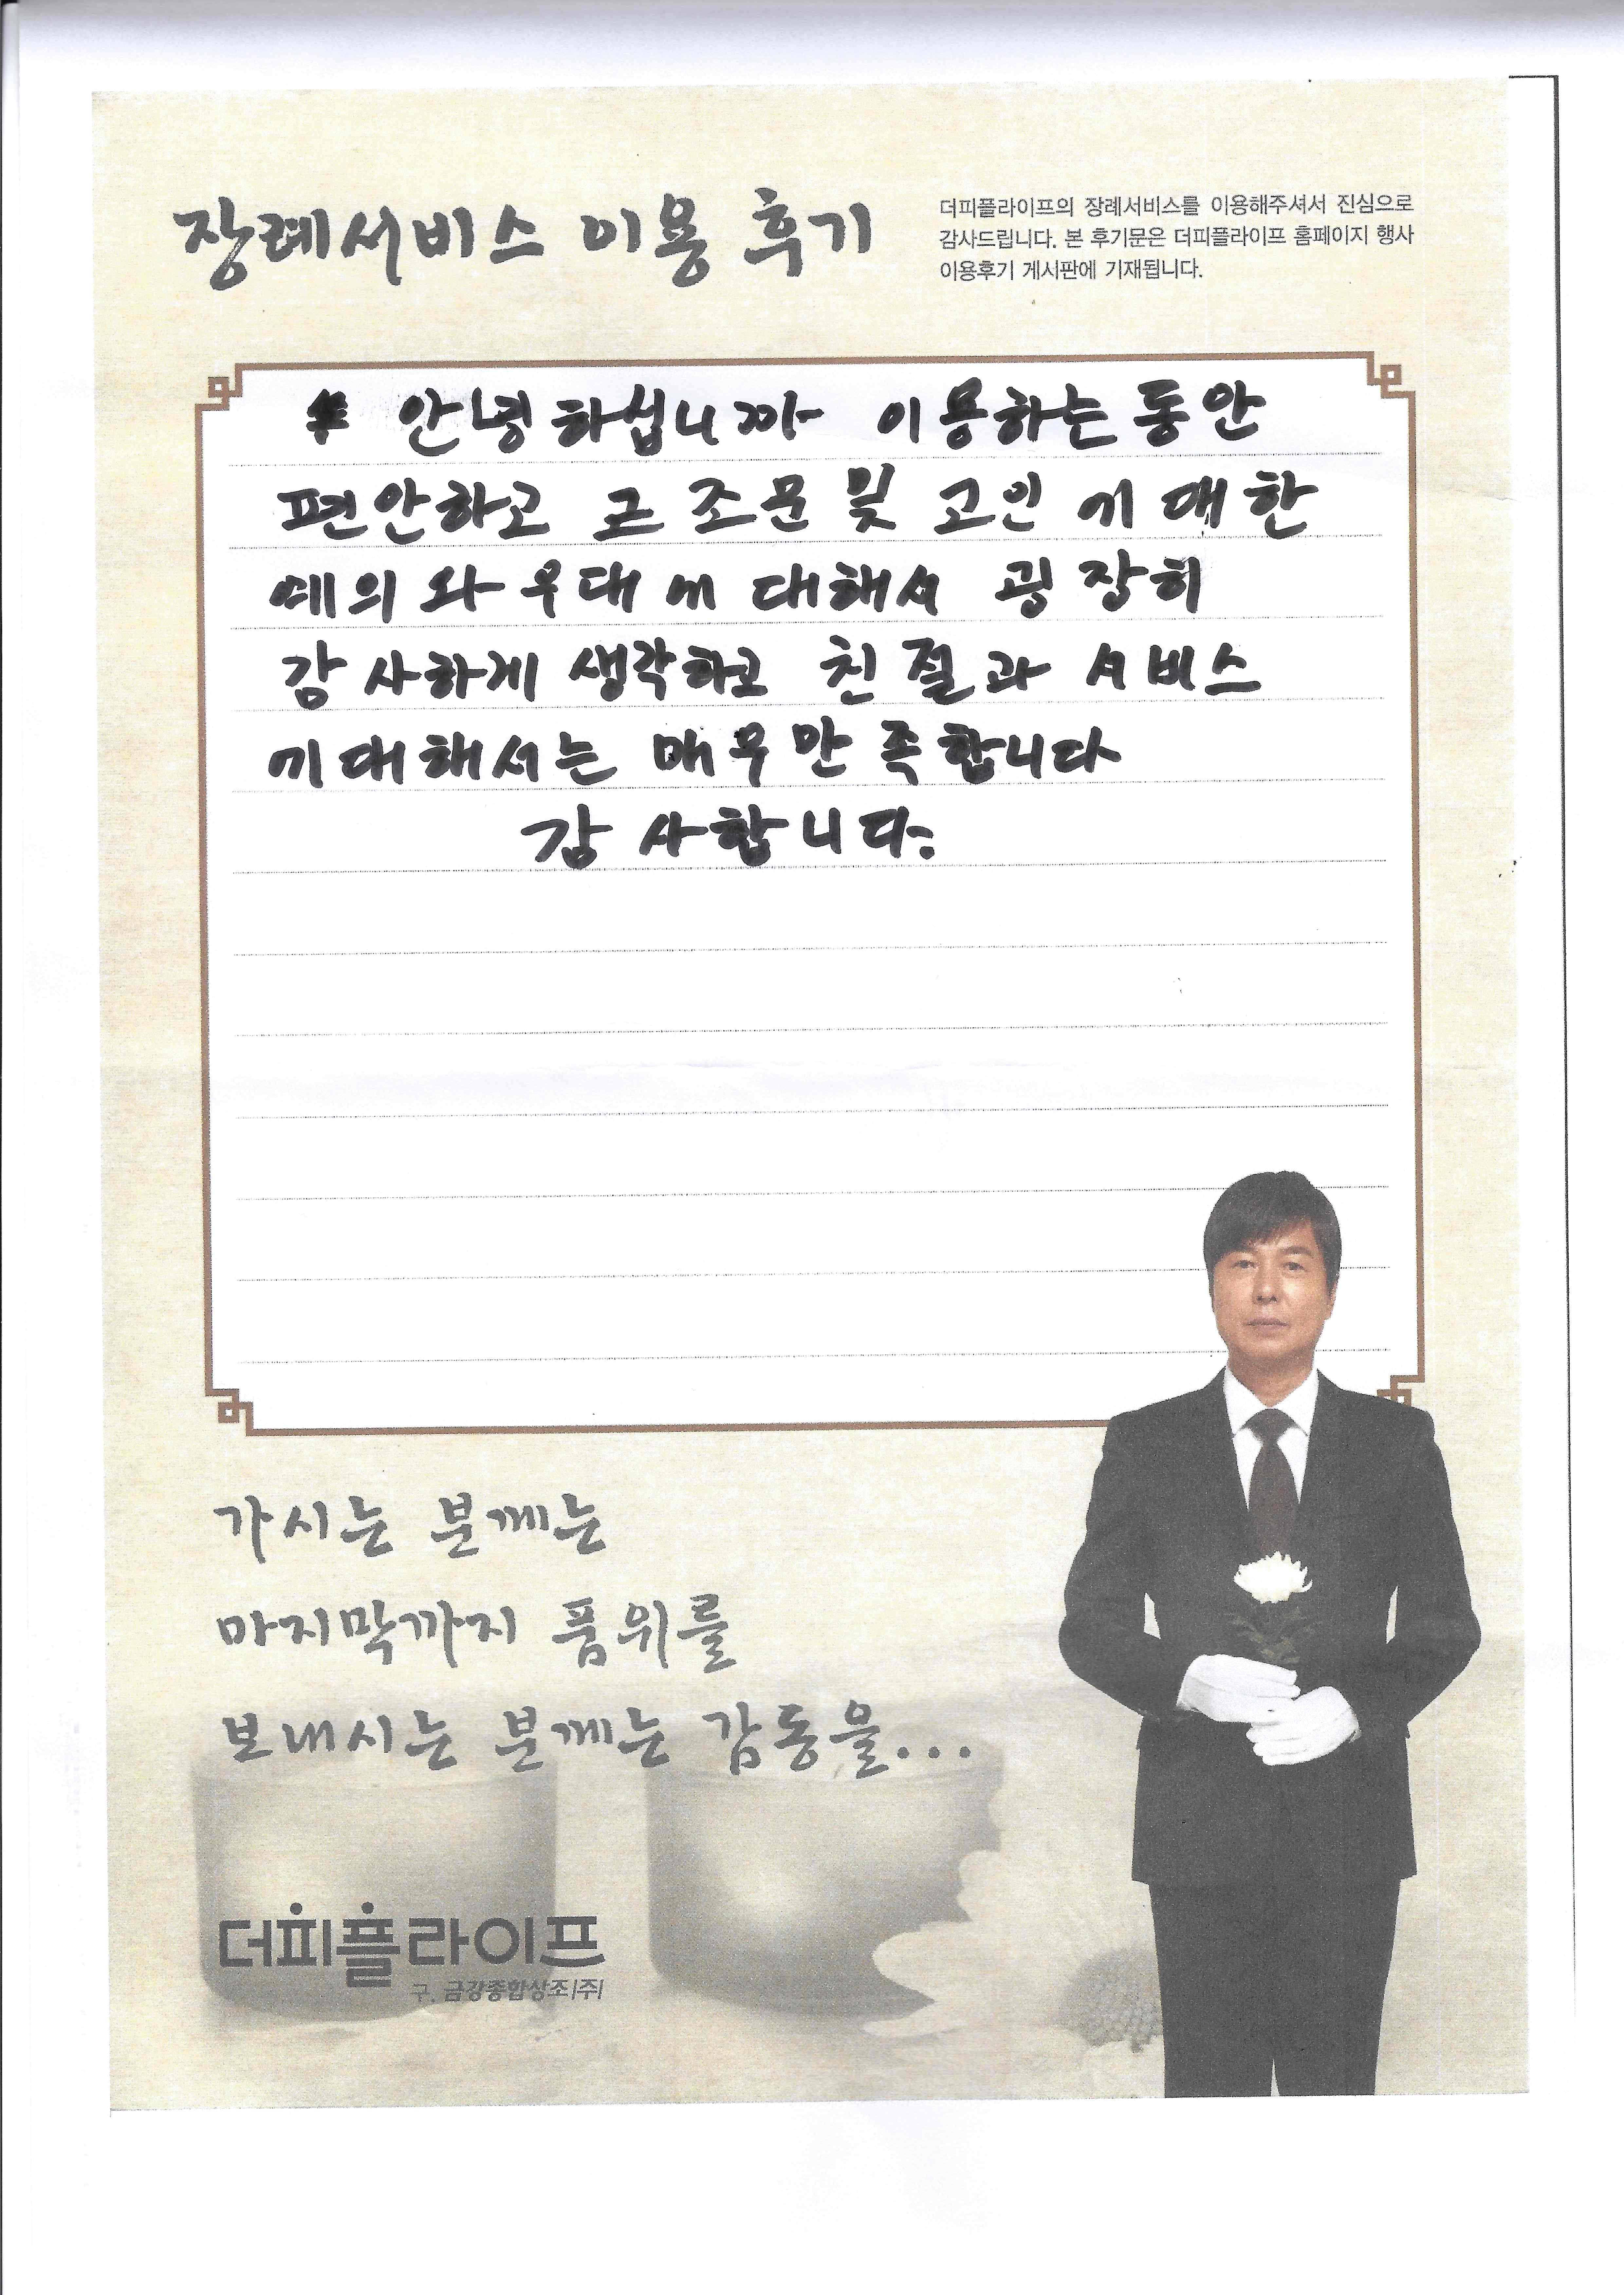 장례서비스 이용 후기
더피플라이프의 장례서비스를 이용해주셔서 진심으로
감사드립니다. 본 후기문은 더피플라이프 홈페이지 행사
이용후기 게시판에 기재됩니다.
# 안녕하십니까 이용하는동안
편안하고 조문및 고인에대한
예의와 우대에 대해서 굉장히
감사하게 생각하고 친절과 서비스
에대해서는 매우만족합니다
감사합니다.
가시는 분께는
마지막까지 품위를
보내시는 분께는 감동을...
더피플라이프
구. 금강종합상조(주)